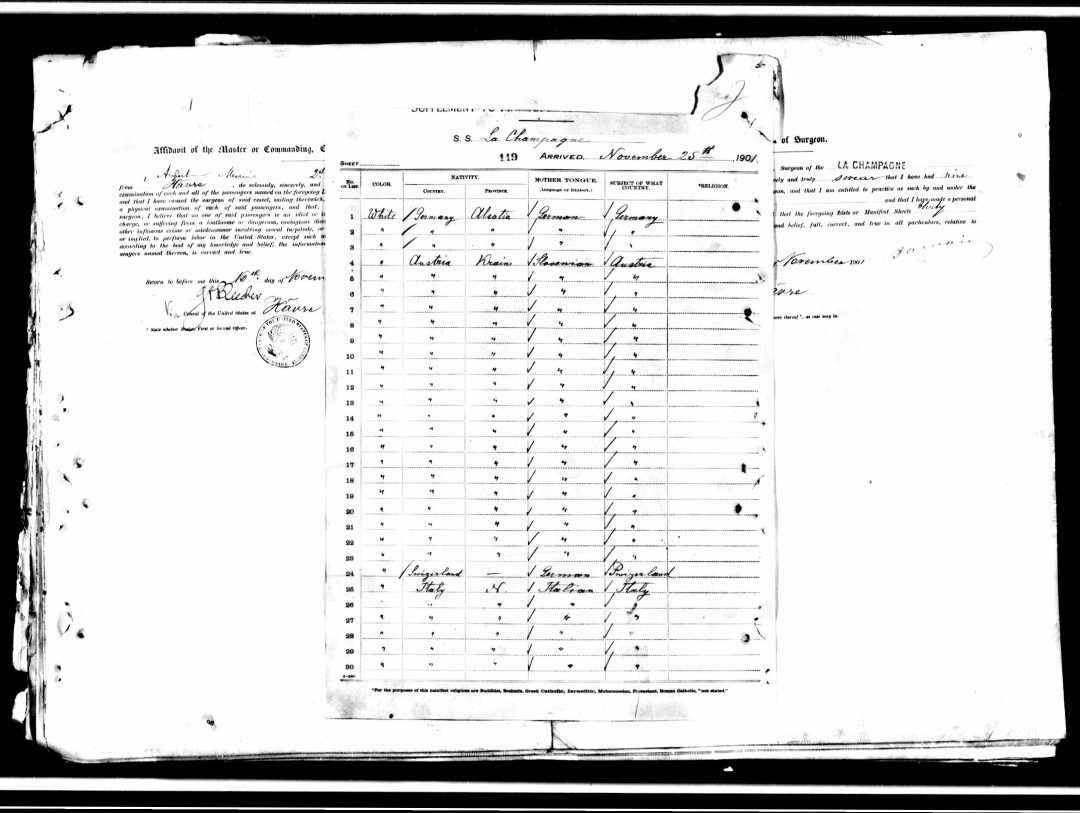 S. S. La Champagne
119 ARRIVED, November 25th, 1901.
SHEET
No. on List. COLOR. NATIVITY. COUNTRY. PROVINCE. MOTHER TONGUE. (Language or Dialect.) SUBJECT OF WHAT COUNTRY. *RELIGION.
1 White Germany Alsatia German Germany
2 " " " " "
3 " " " " "
4 " Austria Krain Slovenian Austria
5 " " " " "
6 " " " " "
7 " " " " "
8 " " " " "
9 " " " " "
10 " " " " "
11 " " " " "
12 " " " " "
13 " " " " "
14 " " " " "
15 " " " " "
16 " " " " "
17 " " " " "
18 " " " " "
19 " " " " "
20 " " " " "
21 " " " " "
22 " " " " "
23 " " " " "
24 " Swizerland — German Swizerland
25 " Italy N. Italian Italy
26 " " " "
27 " " " " "
28 " " " " "
29 " " " " "
30 " " " " "
*For the purposes of this manifest religions are Buddhist, Brahmin, Greek Catholic, Israelitic, Mohammedan, Protestant, Roman Catholic, "not stated."
Affidavit of the Master or Commanding,
from Havre, do solemnly, sincerely, and
examination of each and all of the passengers named on the foregoing
and that I have caused the surgeon of said vessel, sailing therewith,
a physical examination of each of said passengers, and that
surgeon, I believe that no one of said passengers is an idiot or
charge, or suffering from a loathsome or dangerous, contagious
other infamous crime or misdemeanor involving moral turpitude, or
or implied, to perform labor in the United States, except such
according to the best of my knowledge and belief, the information
sengers named thereon, is correct and true.
Sworn to before me this 16th day of
General of the United States at Havre
* State whether Master, First or Second Officer.
of Surgeon.
Surgeon of the LA CHAMPAGNE
ely and truly swear that I have had
geon, and that I am entitled to practice as such by and under the
and that I have made a personal
that the foregoing Lists or Manifest Sheets
and belief, full, correct, and true in all particulars, relative to
November 1901
avre
here thereof", as case may be.